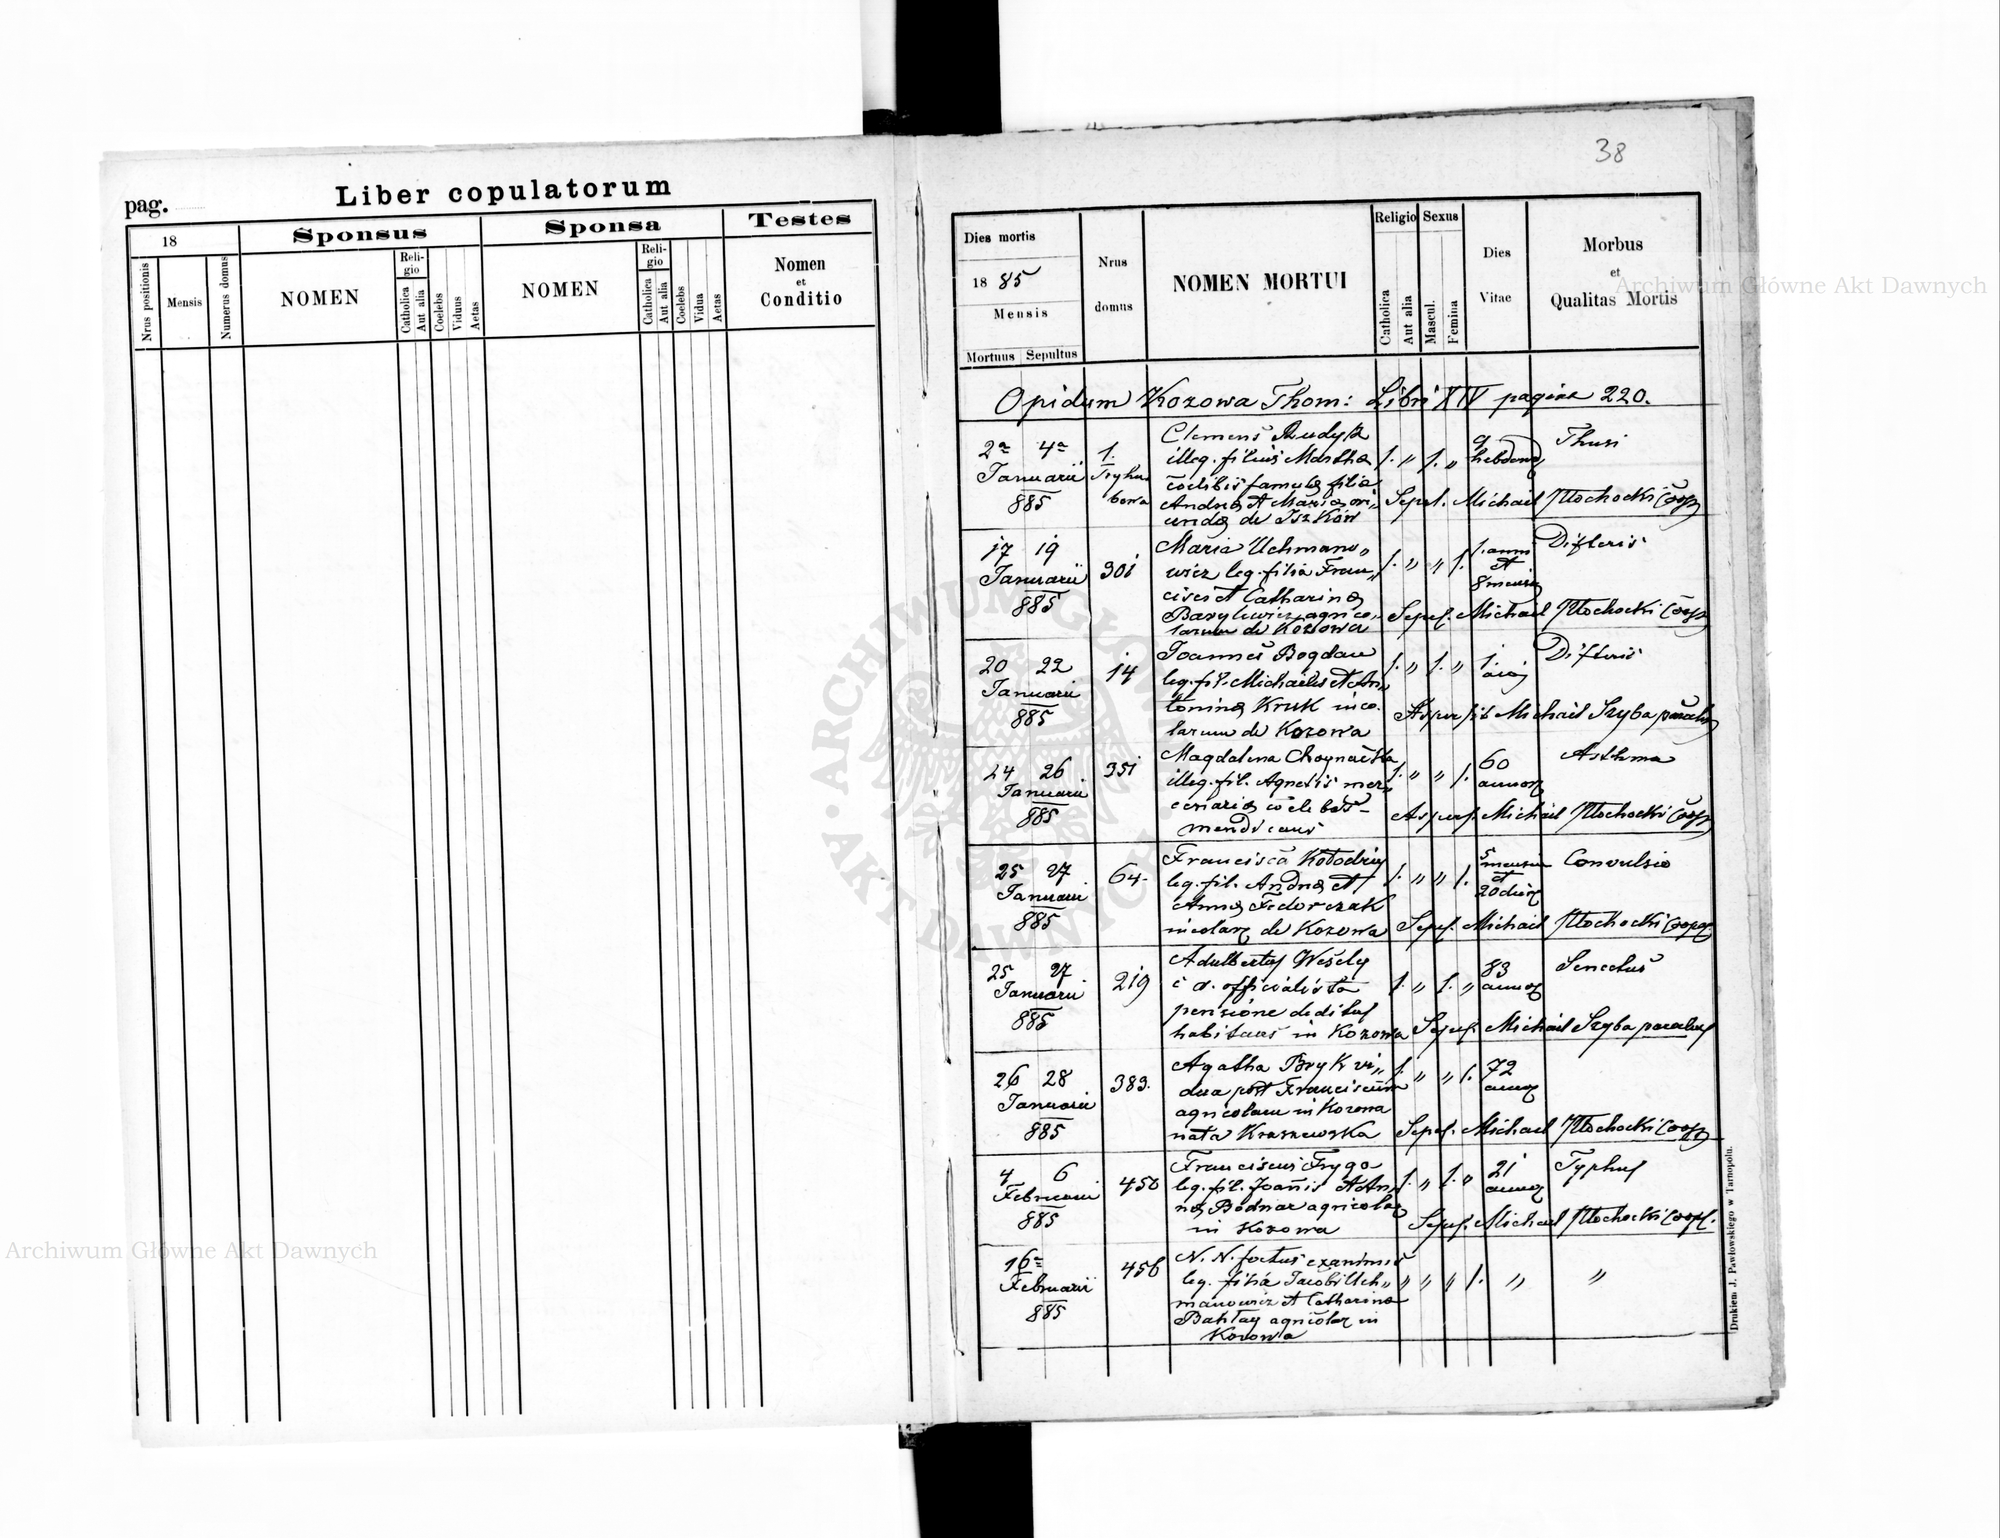 38
pag.
Liber copulatorum
18
Sponsus
Sponsa
Testes
Nrus positionis
Mensis
Numerus domus
NOMEN
Religio
Catholica
Aut alia
Coelebs
Viduus
Aetas
NOMEN
Religio
Catholica
Aut alia
Coelebs
Vidua
Aetas
Nomen
et
Conditio
Dies mortis
1885
Mensis
Mortuus Sepultus
Nrus
domus
NOMEN MORTUI
Religio
Catholica
Aut alia
Sexus
Mascul.
Femina
Dies
Vitae
Morbus
et
Qualitas Mortis
Opidum Kozowa Thom: Libri XIV pagina 220.
2a 4a
Januarii
885
1.
Clemens Rudyk
illeg. filius Martha
coelibis famula filia
Andrea et Maria
de Iszków
1. " 1. "
9
hebdom
Sepel. Michael Kłochocki Coop
17 19
Januarii
885
301
Maria Uchmano"
wicz leg. filia Fran"
cisci et Catharina
Barylewicz agrico"
larum de Kozowa
1. " " 1.
1. anni
et
8 mensi
Difteris
Sepel. Michael Kłochocki Coop
20 22
Januarii
885
14
Joannes Bogdan
leg. fil. Michaelis et An"
tonina Kruk inco"
larum de Kozowa
1. " 1. "
1.
Difteris
Aspersit Michael Szyba paroch
24 26
Januarii
885
351
Magdalena Choynacka
illeg. fil. Agnetis mer"
cenaria coelebs
mendicans
1. " " 1.
60
annor
Asthma
Aspers. Michael Kłochocki Coop
25 27
Januarii
885
64.
Francisca Kołodziy
leg. fil. Andrea et
Anna Fedorczak
incolar de Kozowa
1. " " 1.
5
mensiu
et
20 dier
Convulsio
Sepel. Michael Kłochocki Coop
25 27
Januarii
885
219
Adalbertus Wesely
c. r. officialista
pensione
habitans in Kozowa
1. " 1. "
83
annor
Senectus
Sepel. Michael Szyba parochus
26 28
Januarii
885
383.
Agatha Bryk vi"
dua post Franciscum
agricolam in Kozowa
nata Kraszewska
1. " " 1.
72
annor
Sepel. Michael Kłochocki Coop
4 6
Februarii
885
450
Franciscus Fryga
leg. fil. Joannis et An"
na Bodnar agricolar
in Kozowa
1. " 1. "
21
annor
Typhus
Sepel. Michael Kłochocki Coop.
16a
Februarii
885
456
N. N. foetus exanimis
leg. filia Jacobi Uch"
manowicz et Catharina
agricolar in
Kozowa
" " " 1. " "
Drukiem J. Pawłowskiego w Tarnopolu.
Archiwum Główne Akt Dawnych
Archiwum Główne Akt Dawnych
ARCHIWUM GŁÓWNE AKT DAWNYCH